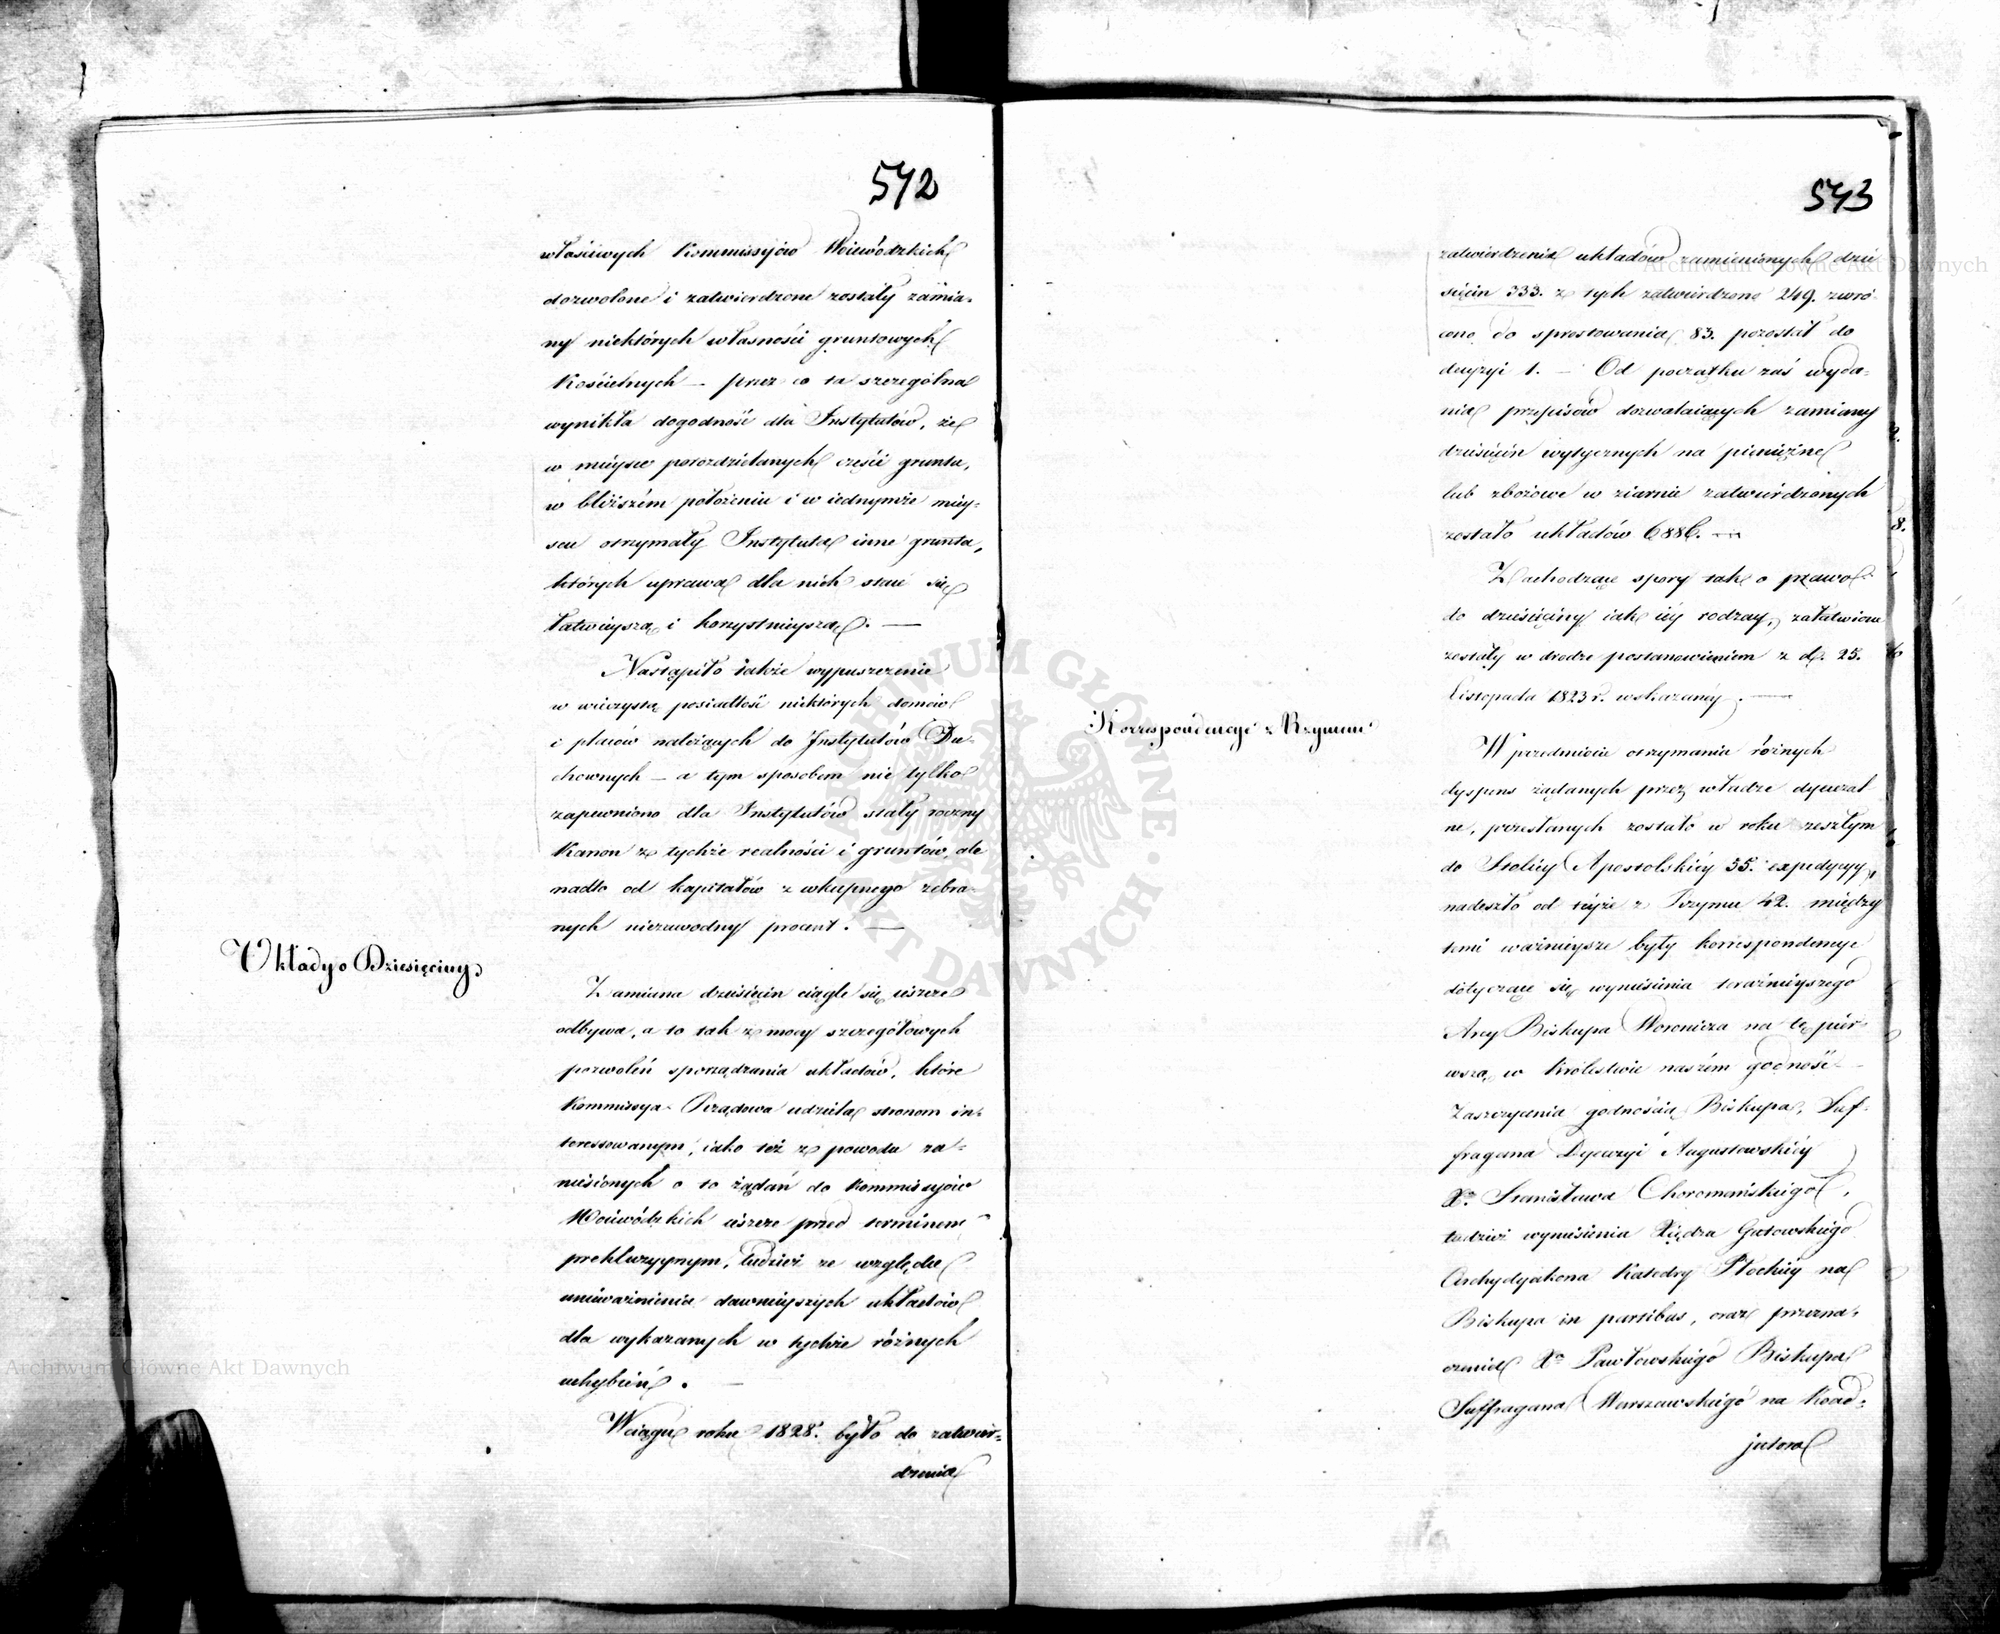 542
właściwych Kommissyiów Woiewódzkich
dozwolone i zatwierdzone zostały zamia-
ny niektórych własności gruntowych
Kościelnych — przez co ta szczególna
wynikła dogodność dla Instytutów, że
w mieysce porozdzielanych części gruntu,
w bliższém położeniu i w iednymże miey-
scu otrzymały Instytuta inne grunta,
których uprawa dla nich staie się
łatwieyszą i korzystnieyszą. —
Nastąpiło także wypuszczenie
w wieczystą posiadłość niektórych domów
i placów należących do Instytutów Du-
chownych — a tym sposobem nie tylko
zapewniono dla Instytutów stały roczny
Kanon z tychże realności i gruntów, ale
nadto od kapitałów z wkupnego zebra-
nych niezawodny procent. —
Układy o Dziesięciny.
Zamiana dziesięcin ciągle się ieszcze
odbywa, a to tak z mocy szczegółowych
pozwoleń sporządzania układów, które
Kommissya Rządowa udziela stronom in-
teressowanym, iako też z powodu za-
niesionych o to żądań do Kommissyiów
Woiewódzkich ieszcze przed terminem
prekluzyynym, tudzież ze względu
unieważnienia dawnieyszych układów
dla wykazanych w tychże różnych
uchybień. —
W ciągu roku 1828. było do zatwier-
dzenia
543
zatwierdzenia układów zamienionych dzie
sięcin 333. z tych zatwierdzono 249. zwró-
cono do sprostowania 83. pozostał do
decyzyi 1. — Od początku zaś wyda-
nia przepisów dozwalaiących zamiany
dziesięcin wytycznych na pieniężne
lub zbożowe w ziarnie zatwierdzonych
zostało układów 6886. —
Zachodzące spory tak o prawo
do dziesięciny iak iéy rodzay, załatwione
zostały w drodze postanowieniem z d. 25.
Listopada 1823 r. wskazanéy. —
Korrespondencye z Rzymem
W przedmiocie otrzymania różnych
dyspens żądanych przez władze dyecezal
ne, przesłanych zostało w roku zeszłym
do Stolicy Apostolskiéy 35. expedycyy,
nadeszło od téyże z Rzymu 42. między
temi ważnieysze były korrespondencye
dotyczące się wyniesienia teraźnieyszego
Arcy Biskupa Woronicza na tę pier-
wszą w Królestwie naszém godność —
Zaszczycenia godnością Biskupa, Suf-
fragana Dyecezyi Augustowskiéy
Xa. Stanisława Choromańskiego,
tudzież wyniesienia Xiędza Gutowskiego
Archydyakona Katedry Płockiéy na
Biskupa in partibus, oraz przezna-
czenia Xa Pawłowskiego Biskupa
Suffragana Warszawskiego na Koad-
jutora
Archiwum Główne Akt Dawnych
Archiwum Główne Akt Dawnych
ARCHIWUM GŁÓWNE AKT DAWNYCH